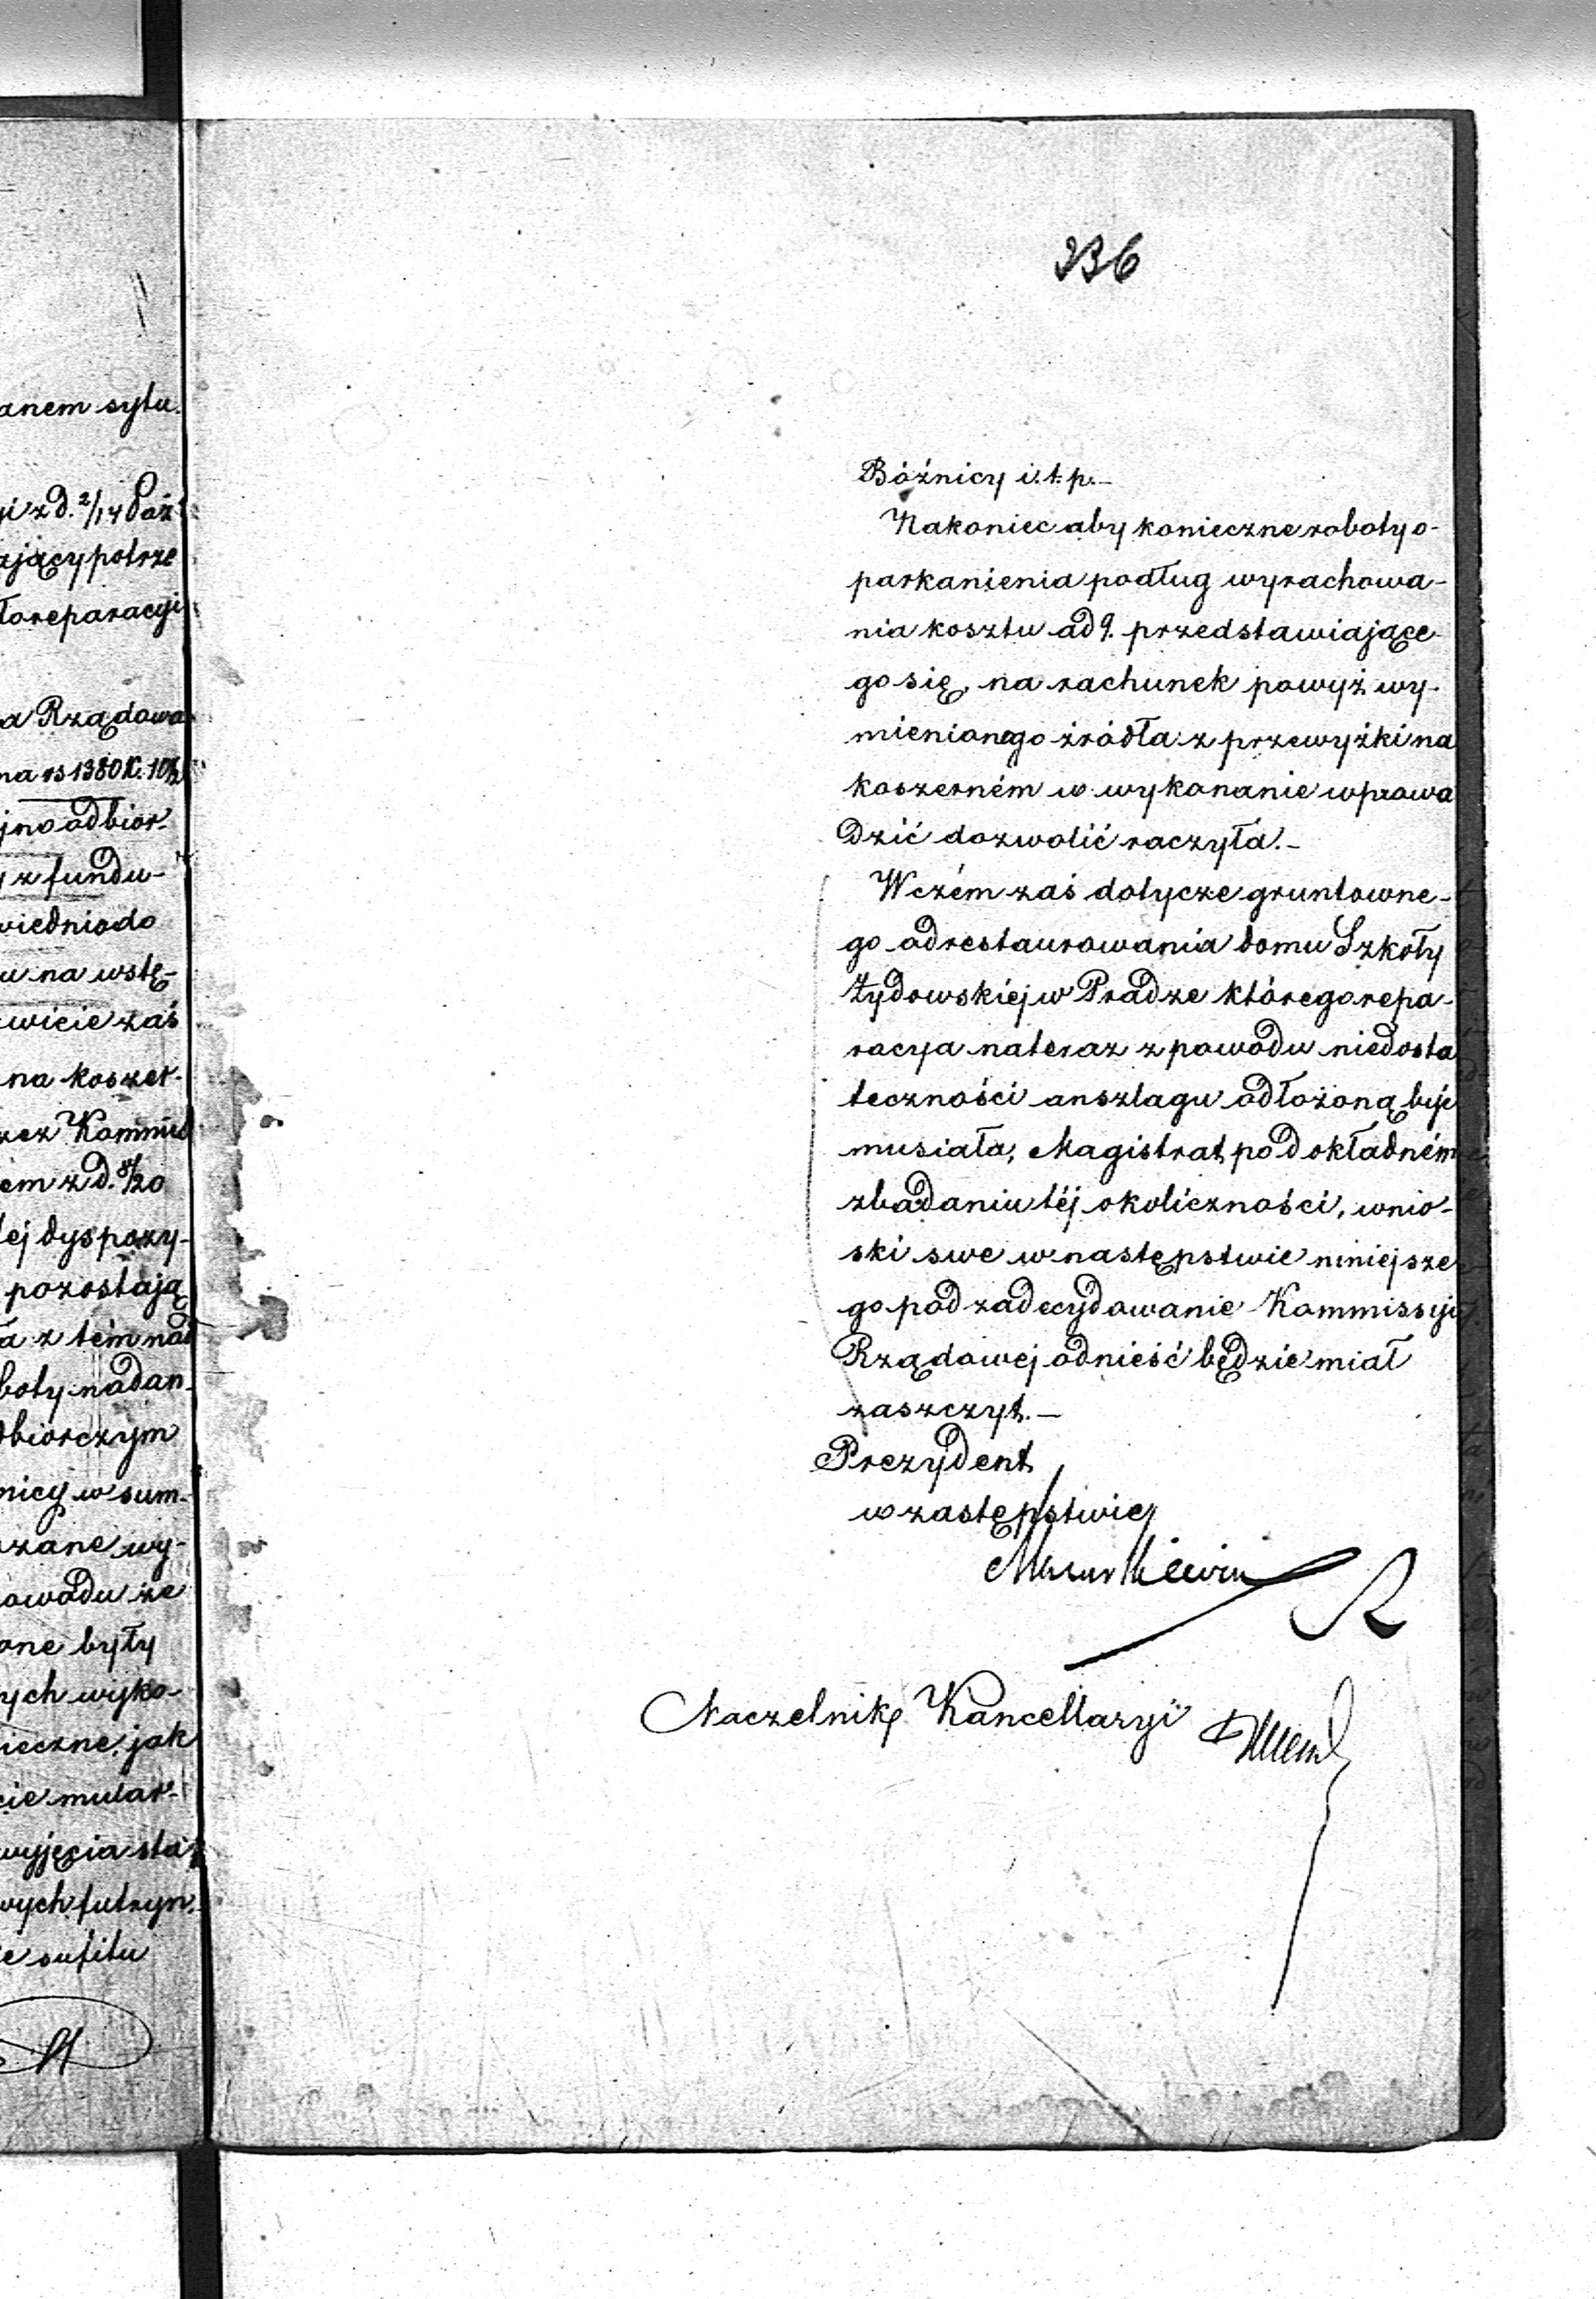 anem sytu.
yi z d. 2/14 Paź
ający potrze
ło reparacyi
a Rządowa
na rs 1380 K. 10½
jno odbior.
y z fundu-
wiednio do
u na wstę-
wicie zaś
na koszer-
zez Kommis
em z d. 8/20
tej dyspozy-
pozostają
a z tém nad
boty nadan.
dbiorczym
nicy w sum-
zane wy-
owodu że
one były
ych wyko-
ieczne, jak
cie mular-
wyjęcia sta
wych futryn,
ie sufitu
336
Bóźnicy i. t. p.-
Nakoniec aby konieczne roboty o-
parkanienia podług wyrachowa-
nia kosztu ad 9. przedstawiające-
go się, na rachunek powyż wy-
mienionego źródła z przewyżki na
koszerném w wykonanie wprowa
dzić dozwolić raczyła.-
W czém zaś dotycze gruntowne-
go odrestaurowania domu Szkoły
Żydowskiéj w Pradze którego repa-
racya nateraz z powodu niedosta
teczności anszlagu odłożoną być
musiała, Magistrat po dokładném
zbadaniu téj okoliczności, wnio-
ski swe w następstwie niniejsze
go pod zadecydowanie Kommissyi
Rządowej odnieść będzie miał
zaszczyt.-
Prezydent
w zastępstwie
Naczelnik Kancellaryi